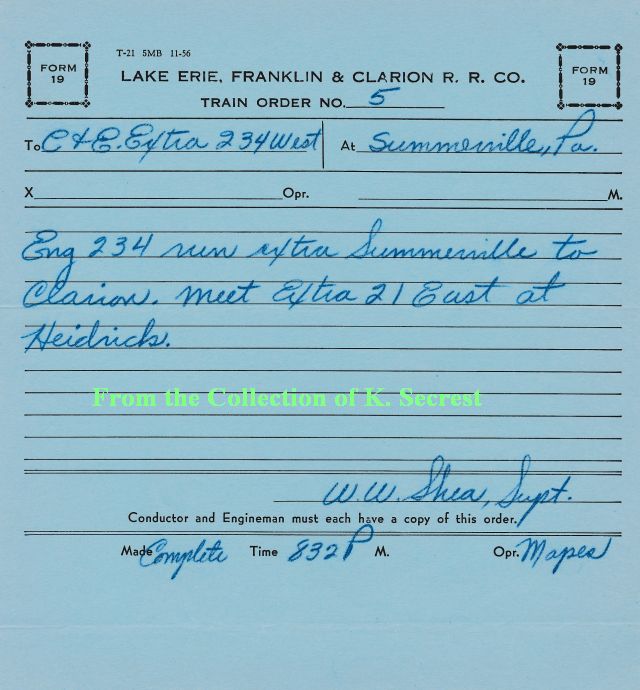 T-21 5MB 11-56
FORM 19
LAKE ERIE, FRANKLIN & CLARION R. R. CO.
FORM 19
TRAIN ORDER NO. 5
To C & E. Extra 234 West At Summerville, Pa.
X Opr. M.
Eng 234 run extra Summerville to
Clarion. Meet Extra 21 East at
Heidrick.
From the Collection of K. Secrest
W. W. Shea, Supt.
Conductor and Engineman must each have a copy of this order.
Made Complete Time 832 P M. Opr. Mapes